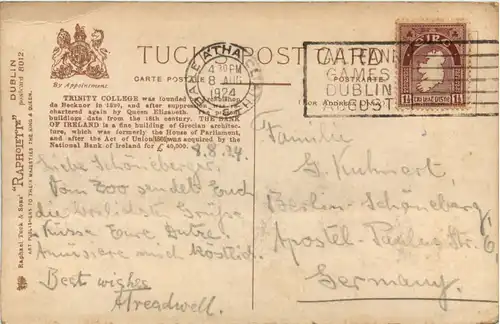 TUCK'S POST CARD
CARTE POSTALE
POSTKARTE
By Appointment
TRINITY COLLEGE was founded
da Becknor in 1320, and after suppression re-
chartered again by Queen Elizabeth. The
buildings date from the 18th century. THE BANK
OF IRELAND is a fine building of Grecian architec-
ture, which was formerly the House of Parliament,
and after the Act of Union (1800) was acquired by the
National Bank of Ireland for £40,000.
Raphael Tuck & Sons' "RAPHOLETTE" DUBLIN
postcard 8012
ART PUBLISHERS TO THEIR MAJESTIES THE KING & QUEEN.
BAILE ÁTHA CLIATH
4 30 PM
8 AUG
1924
GAMES
DUBLIN
AUGUST
(For Address Only)
1½
1½
8.8.24
Liebe Schöneberger.
Vom Zoo sendet Euch
die herzlichsten Grüsse
Küsse Eure
Amüsiere mich köstlich.
Best wishes
Familie
G. Kuhnert
Berlin-Schöneberg
Apostel-Paulus Str. 6
Germany.